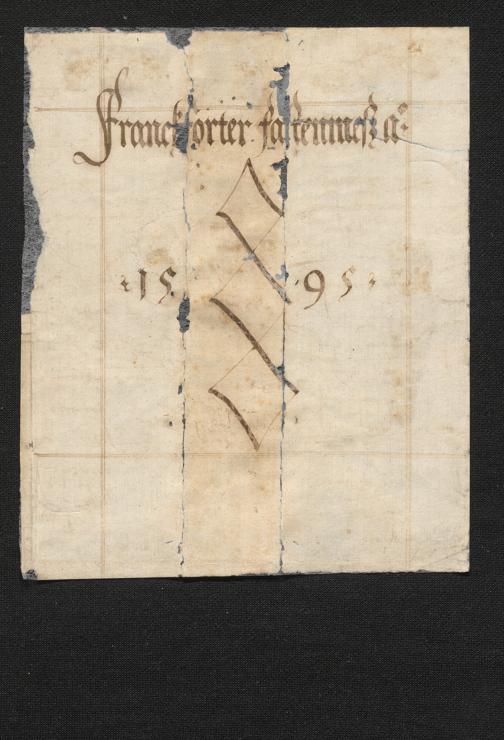 Franckförter fastenmeß aº
·1595·